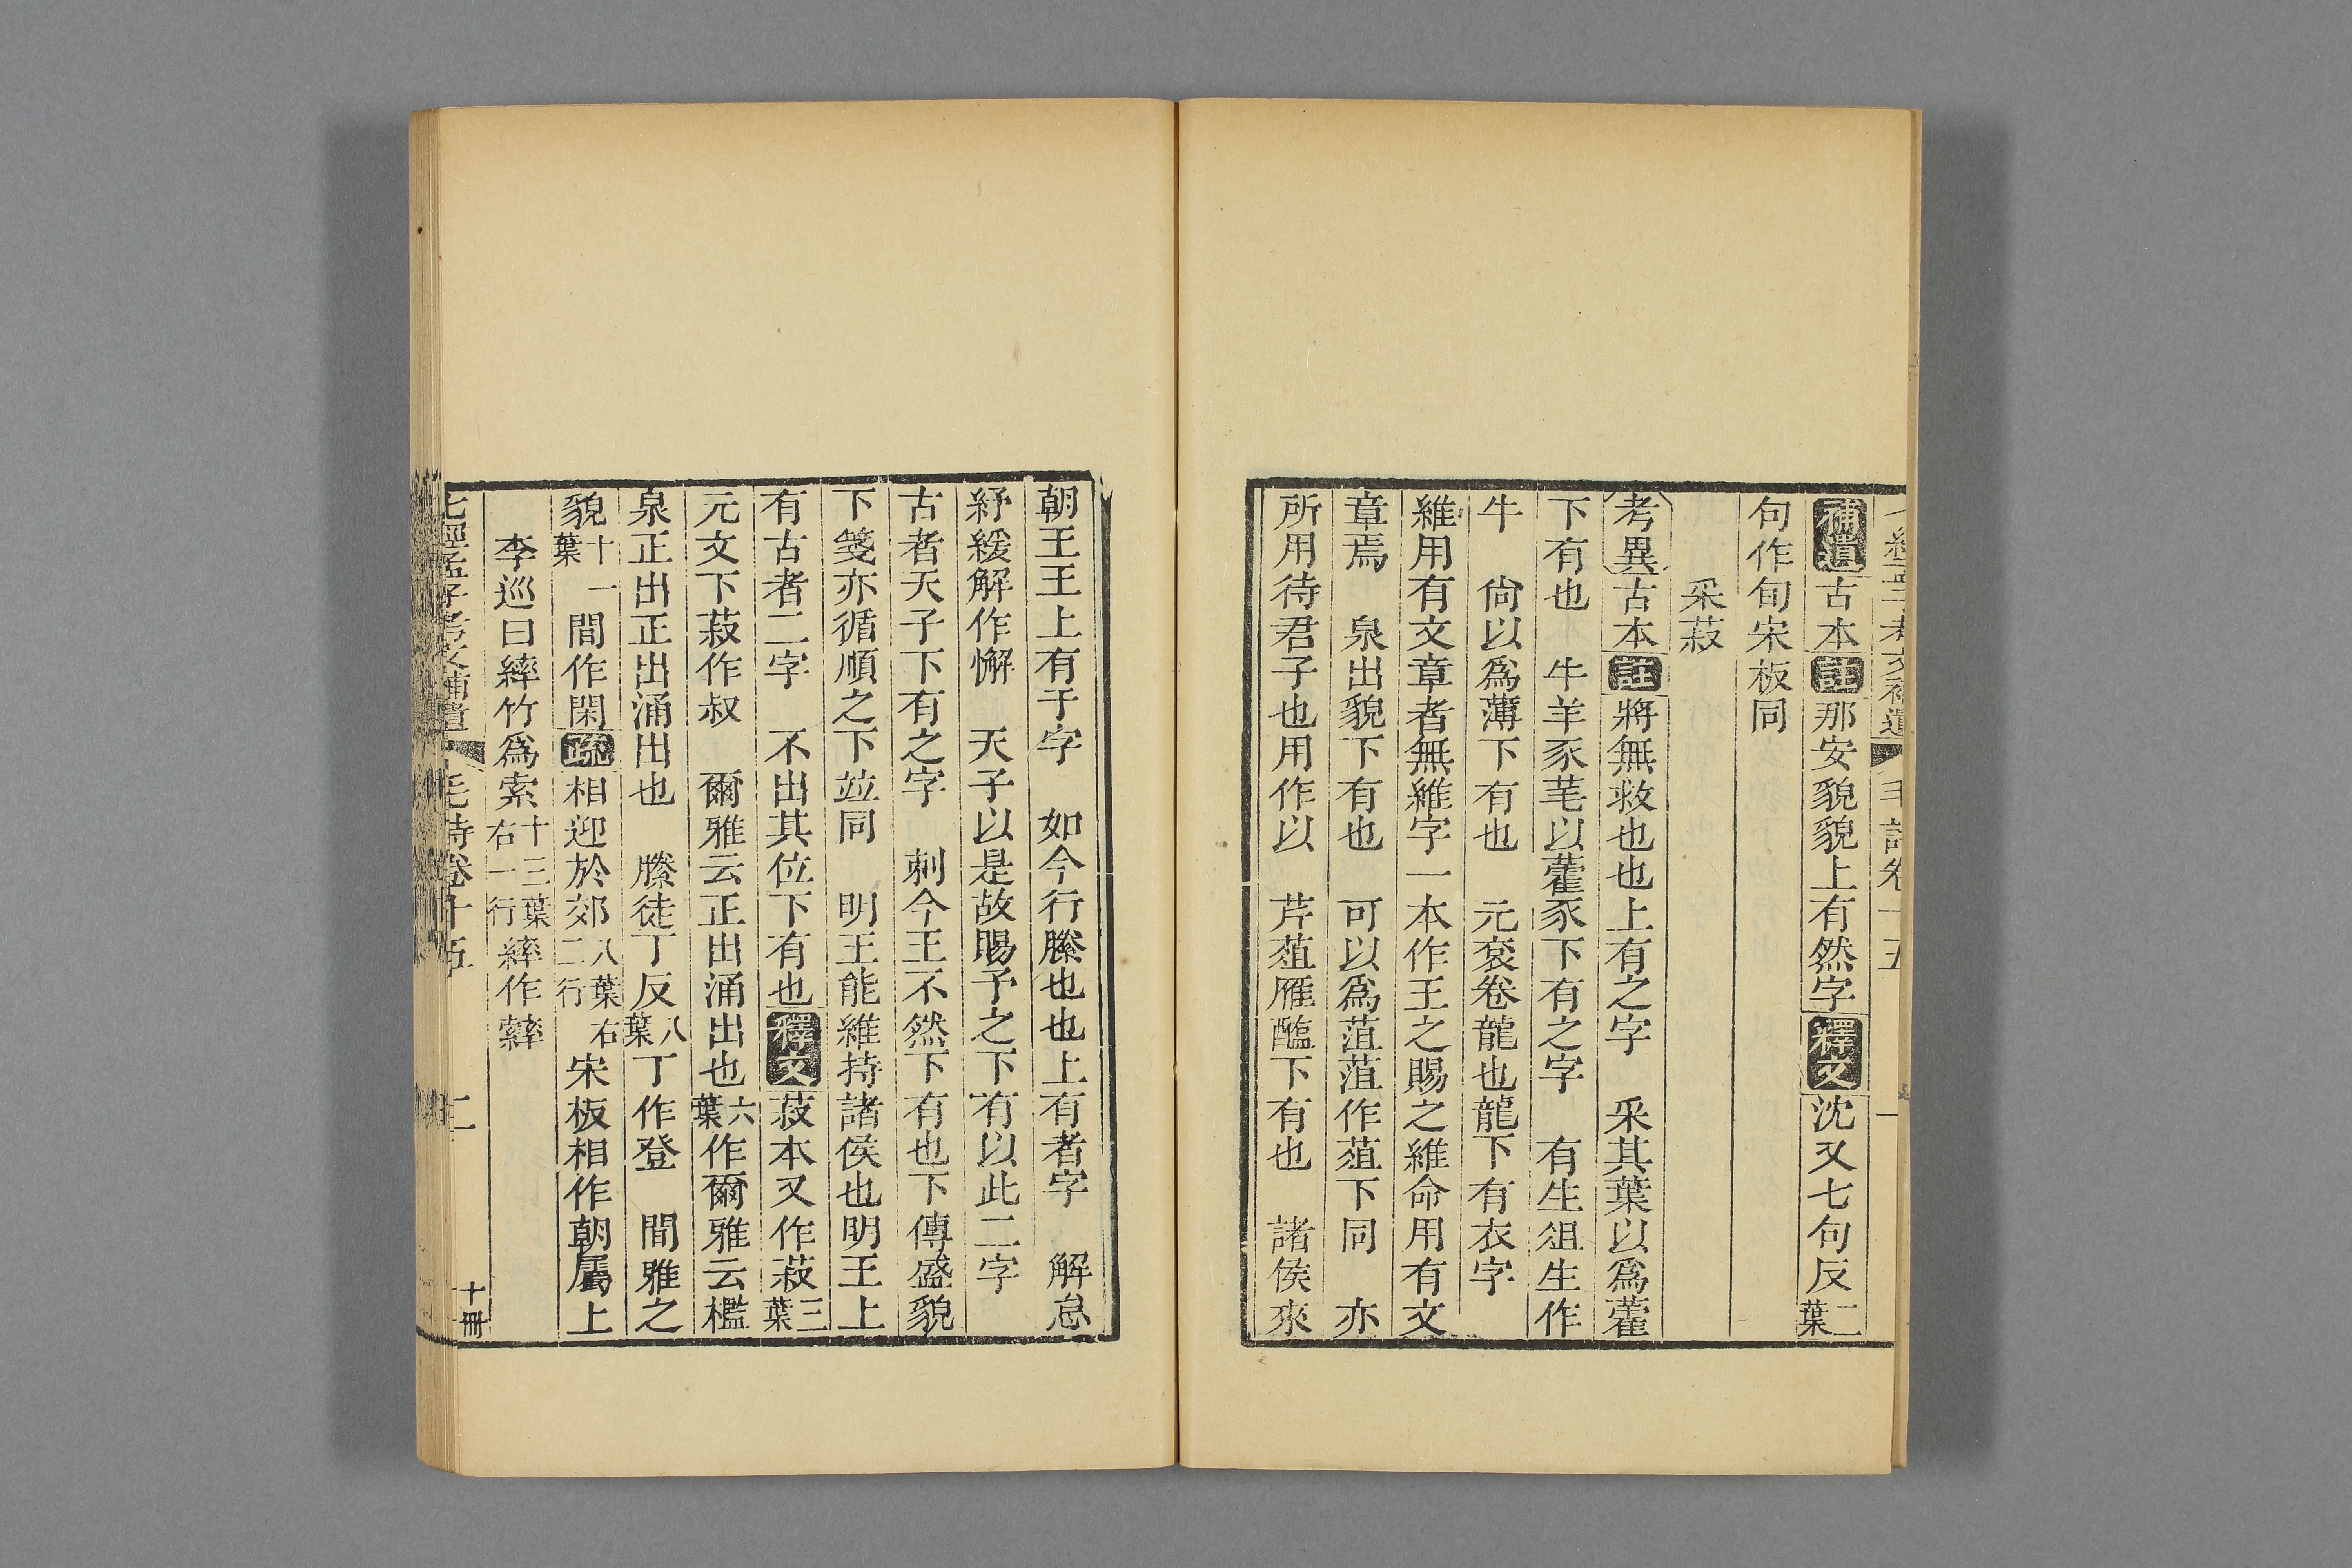 補遺古本註那安貌貌上有然字釋文沈又七句反二葉
句作旬宋板同
采菽
考異古本註將無救也也上有之字　采其葉以爲藿
下有也　牛羊豕芼以藿豕下有之字　有生俎生作
牛　尙以爲薄下有也　元袞卷龍也龍下有衣字
維用有文章者無維字一本作王之賜之維命用有文
章焉　泉出貌下有也　可以爲菹菹作葅下同　亦
所用待君子也用作以　芹葅雁醢下有也　諸侯來
朝王王上有于字　如今行縢也也上有者字　解怠
紓緩解作懈　天子以是故賜予之下有以此二字
古者天子下有之字　刺今王不然下有也下傳盛貌
下箋亦循順之下竝同　明王能維持諸侯也明王上
有古者二字　不出其位下有也釋文菽本又作菽三葉
元文下菽作叔　爾雅云正出涌出也六葉作爾雅云檻
泉正出正出涌出也　縢徒丁反八葉丁作登　間雅之
貌十一葉間作閑疏相迎於郊八葉右二行宋板相作朝屬上
李巡曰繂竹爲索十三葉右一行繂作䌫
七經孟子考文補遺　毛詩卷十五　二　十冊